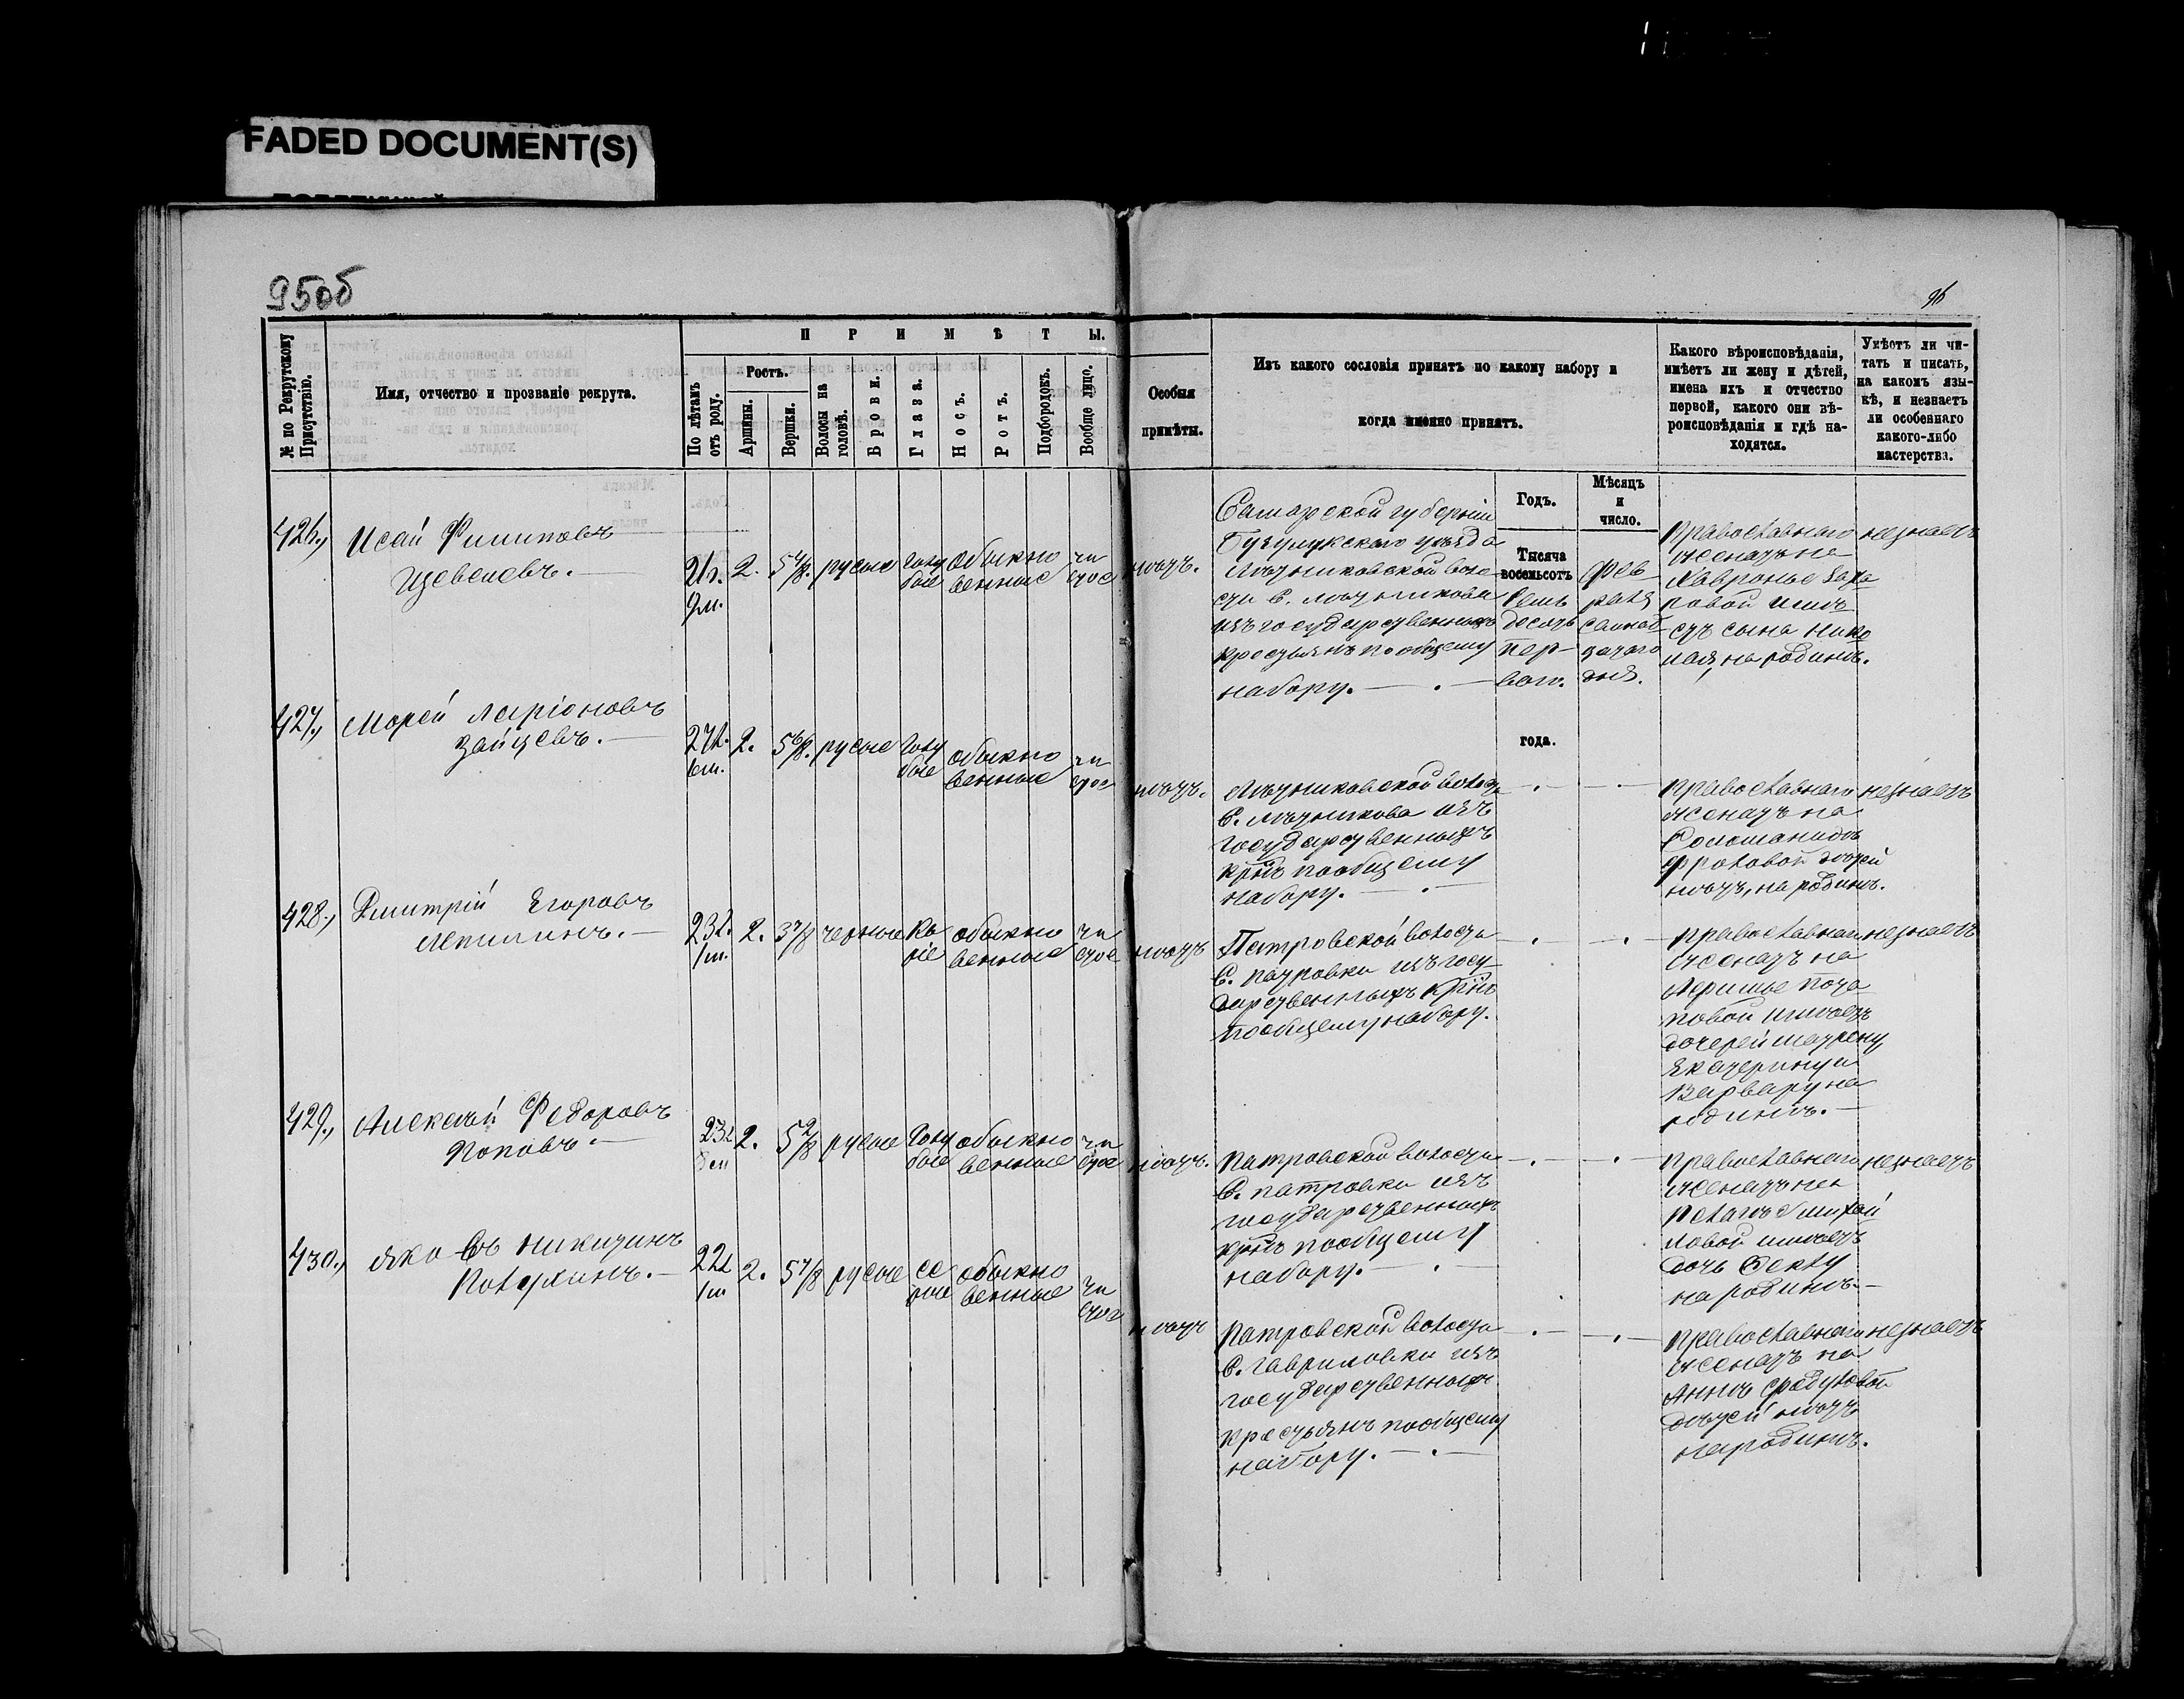 FADED DOCUMENT(S)
95об
96
№ по Рекрутскому Присутствію.
Имя, отчество и прозваніе рекрута.
ПРИМѢТЫ.
По лѣтамъ отъ роду.
Ростъ.
Аршины.
Вершки.
Волосы на головѣ.
Брови.
Глаза.
Носъ.
Ротъ.
Подбородокъ.
Вообще лицо.
Особыя
примѣты.
Изъ какого сословія принятъ по какому набору и
когда именно принятъ.
Какого вѣроисповѣданія,
имѣетъ ли жену и дѣтей,
имена ихъ и отчество
первой, какого они вѣ-
роисповѣданія и гдѣ на-
ходятся.
Умѣетъ ли чи-
тать и писать,
на какомъ язы-
кѣ, и незнаетъ
ли особеннаго
какого-либо
мастерства.
Годъ.
Мѣсяцъ
и
число.
426.,
Исай Филиповъ
21л.
9м.
2.
5 4/8.
русые
голу
бые
обыкно
венные
чи
стое
нѣтъ.
Самарской губерніи
Бузулукскаго уѣзда
волос
сти С.
изъ государственныхъ
крестьянъ по общему
набору.
Тысяча
восемьсотъ
семь
десятъ
пер-
ваго.
года.
Фев-
раля
дня.
православнаго
женатъ на
Хавронье Заха
ровой имѣ
етъ сына Нико
лая, на родинѣ.
незнаетъ
427.,
Ларіоновъ
Зайцевъ.
27л.
6м.
2.
5 6/8.
русые
голу
бые
обыкно
венные
чи
стое
нѣтъ.
С.
изъ
государственныхъ
крнъ пообщему
набору.
православнаго
женатъ на
Соломанидѣ
Фроловой дѣтей
нѣтъ, на родинѣ.
незнаетъ
428.,
Дмитрій Егоровъ
Лепилинъ.
23л.
1м.
2.
3 7/8
черные
ка
ріе
обыкно
венные
чи
стое
нѣтъ
Патровской волости
С. патровки изъ госу
дарственныхъ крнъ
пообщему набору.
православнаго
женатъ на
пота
повой имѣетъ
дочерей Матрену,
Екатерину и
Варвару на
родинѣ.
незнаетъ
429.,
Алексѣй Федоровъ
Поповъ.
23л
8м
2.
5 2/8
русые
голу
бые
обыкно
венные
чи
стое
нѣтъ.
Патровской волости
С. патровки изъ
государственныхъ
крнъ пообщему
набору.
православнаго
женатъ на
Пелагѣе Михай
ловой имѣетъ
дочь Феклу
на родинѣ.
незнаетъ
430.,
Яковъ Никитинъ
22л
1м
2.
5 7/8
русые
се
рые
обыкно
венные
чи
стое
нѣтъ
Патровской волости
С. Гавриловки изъ
государственныхъ
крестьянъ пообщему
набору.
православнаго
женатъ на
Аннѣ
дѣтей нѣтъ
на родинѣ.
незнаетъ